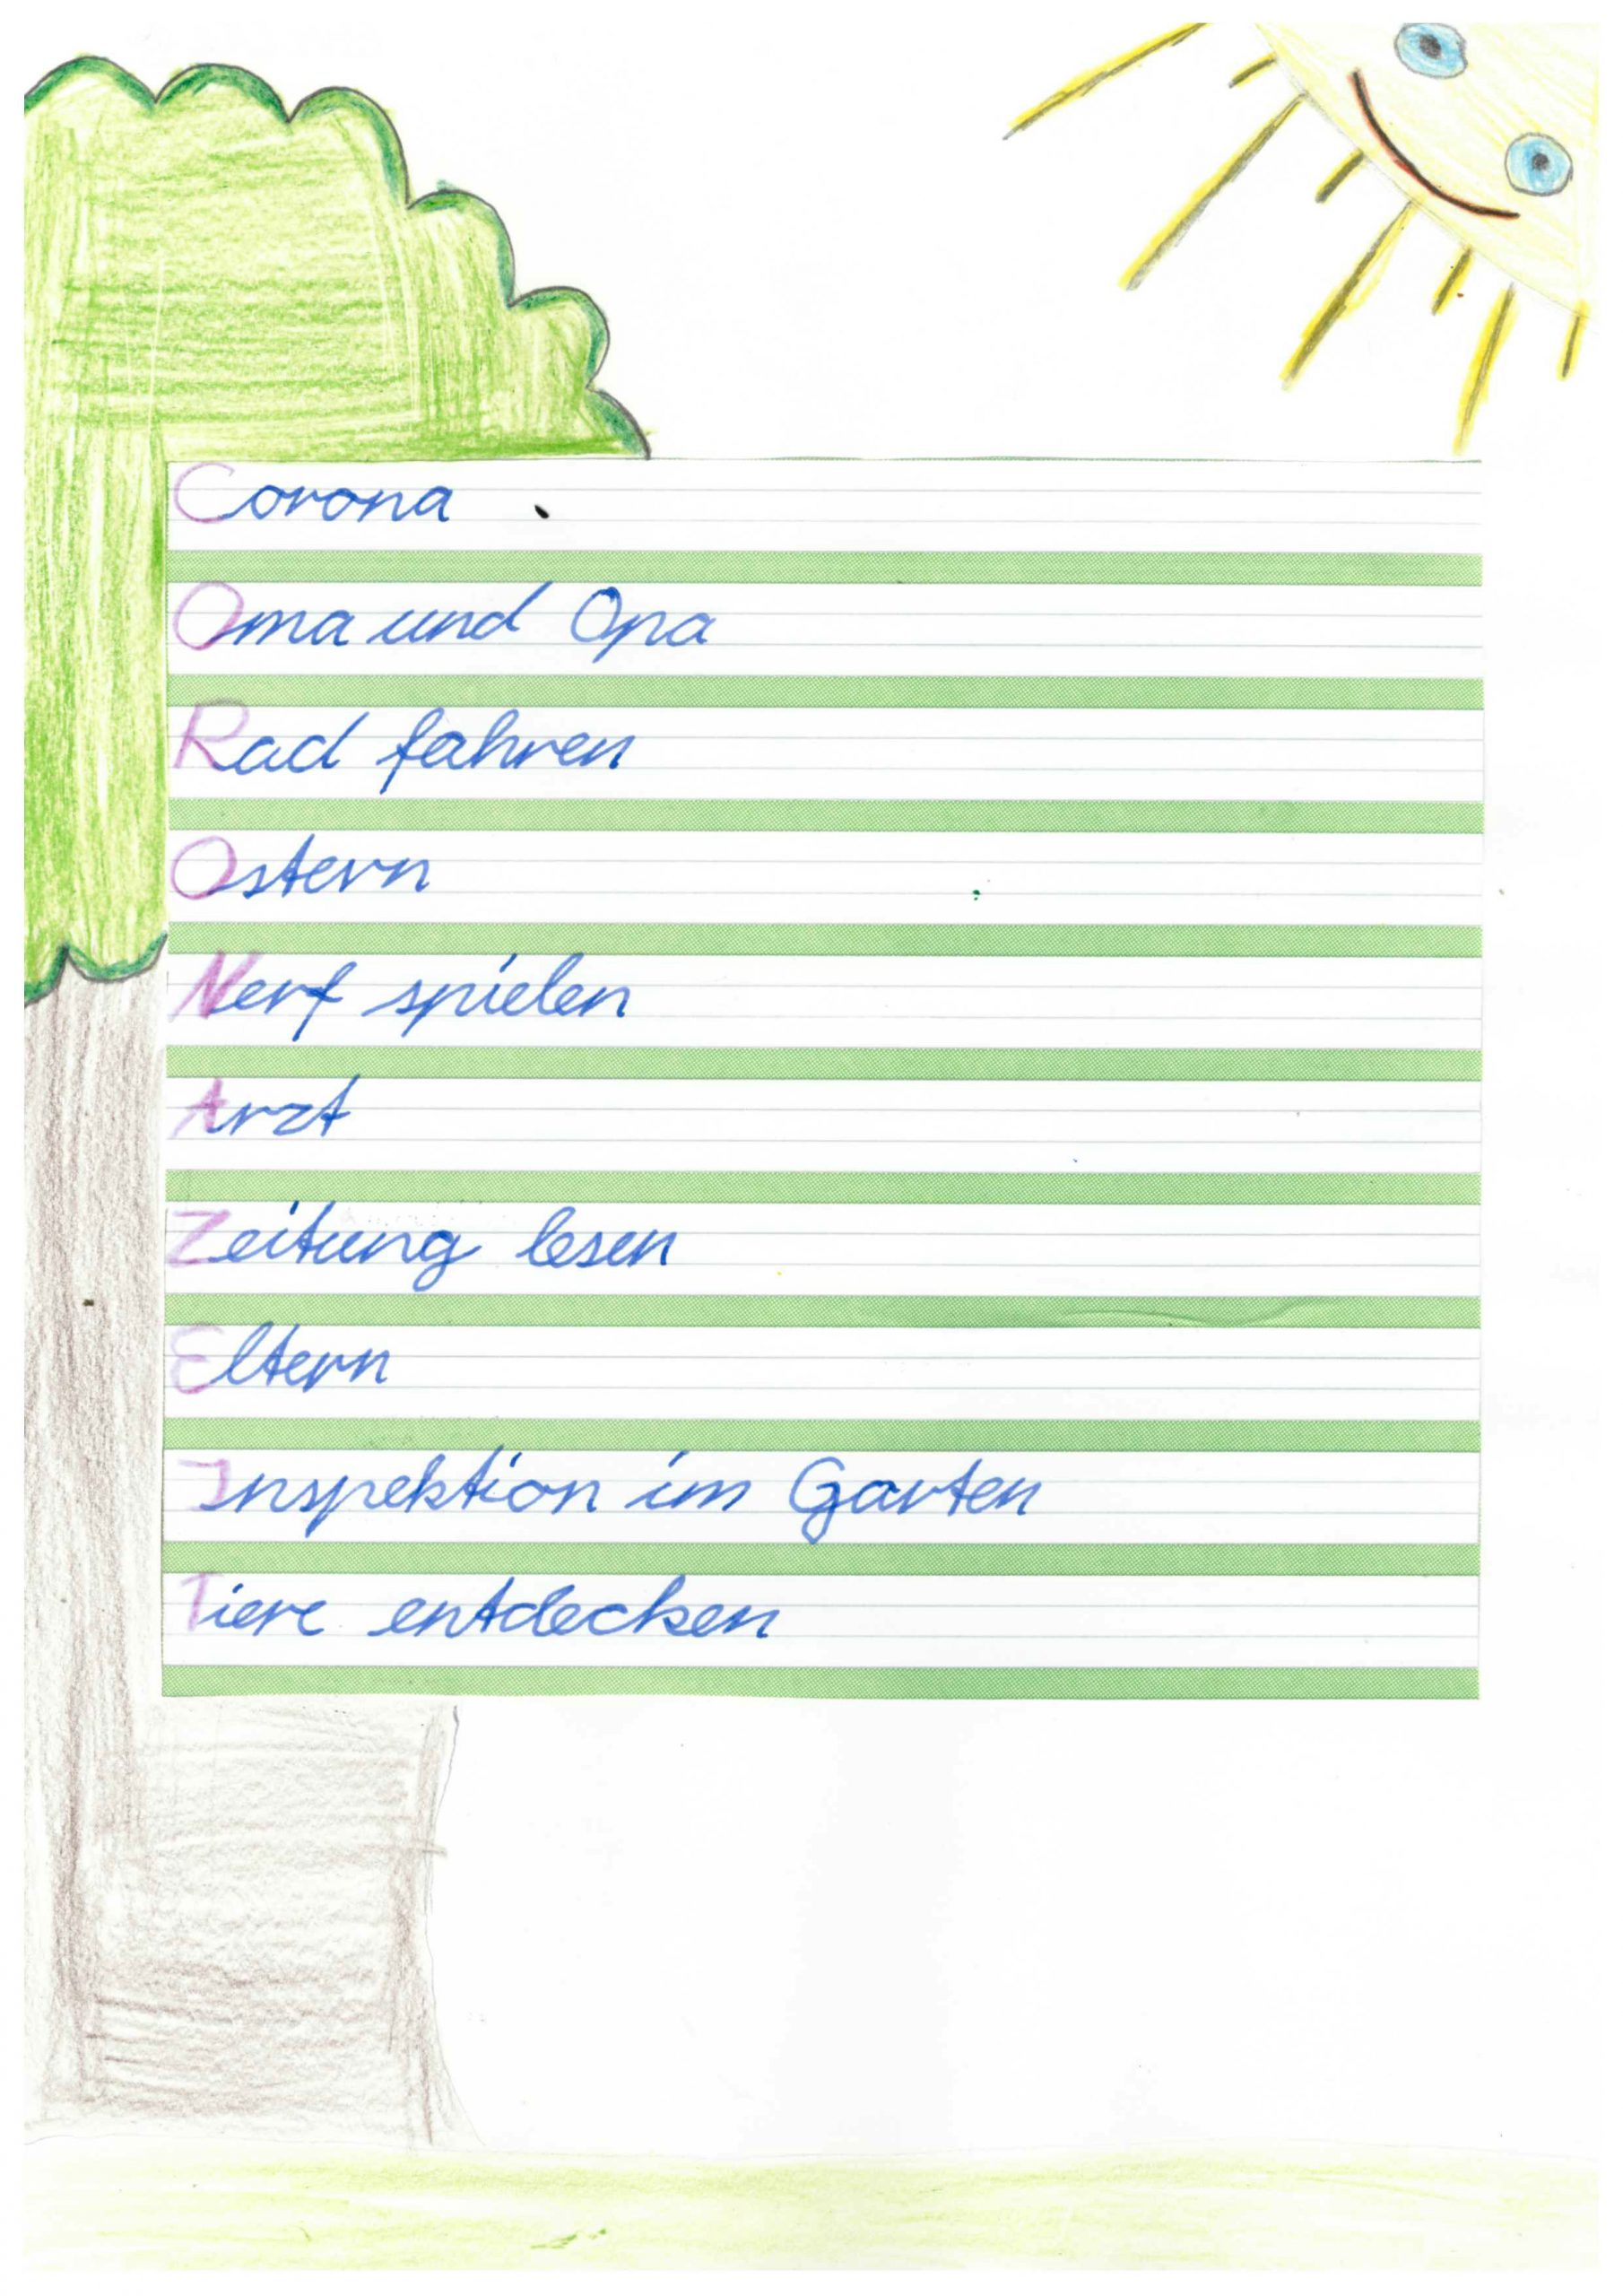 Corona
Oma und Opa
Rad fahren
Ostern
Nerf spielen
Arzt
Zeitung lesen
Eltern
Inspektion im Garten
Tiere entdecken